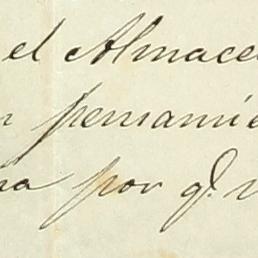 el Almace
pensamie
por q.